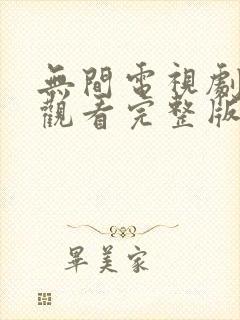 無間電視劇
觀看完整版
畢美家